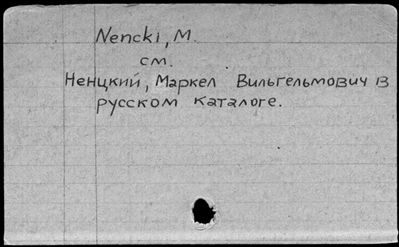 Nencki, M.
см.
Ненцкий, Маркел Вильгельмович в
русском каталоге.